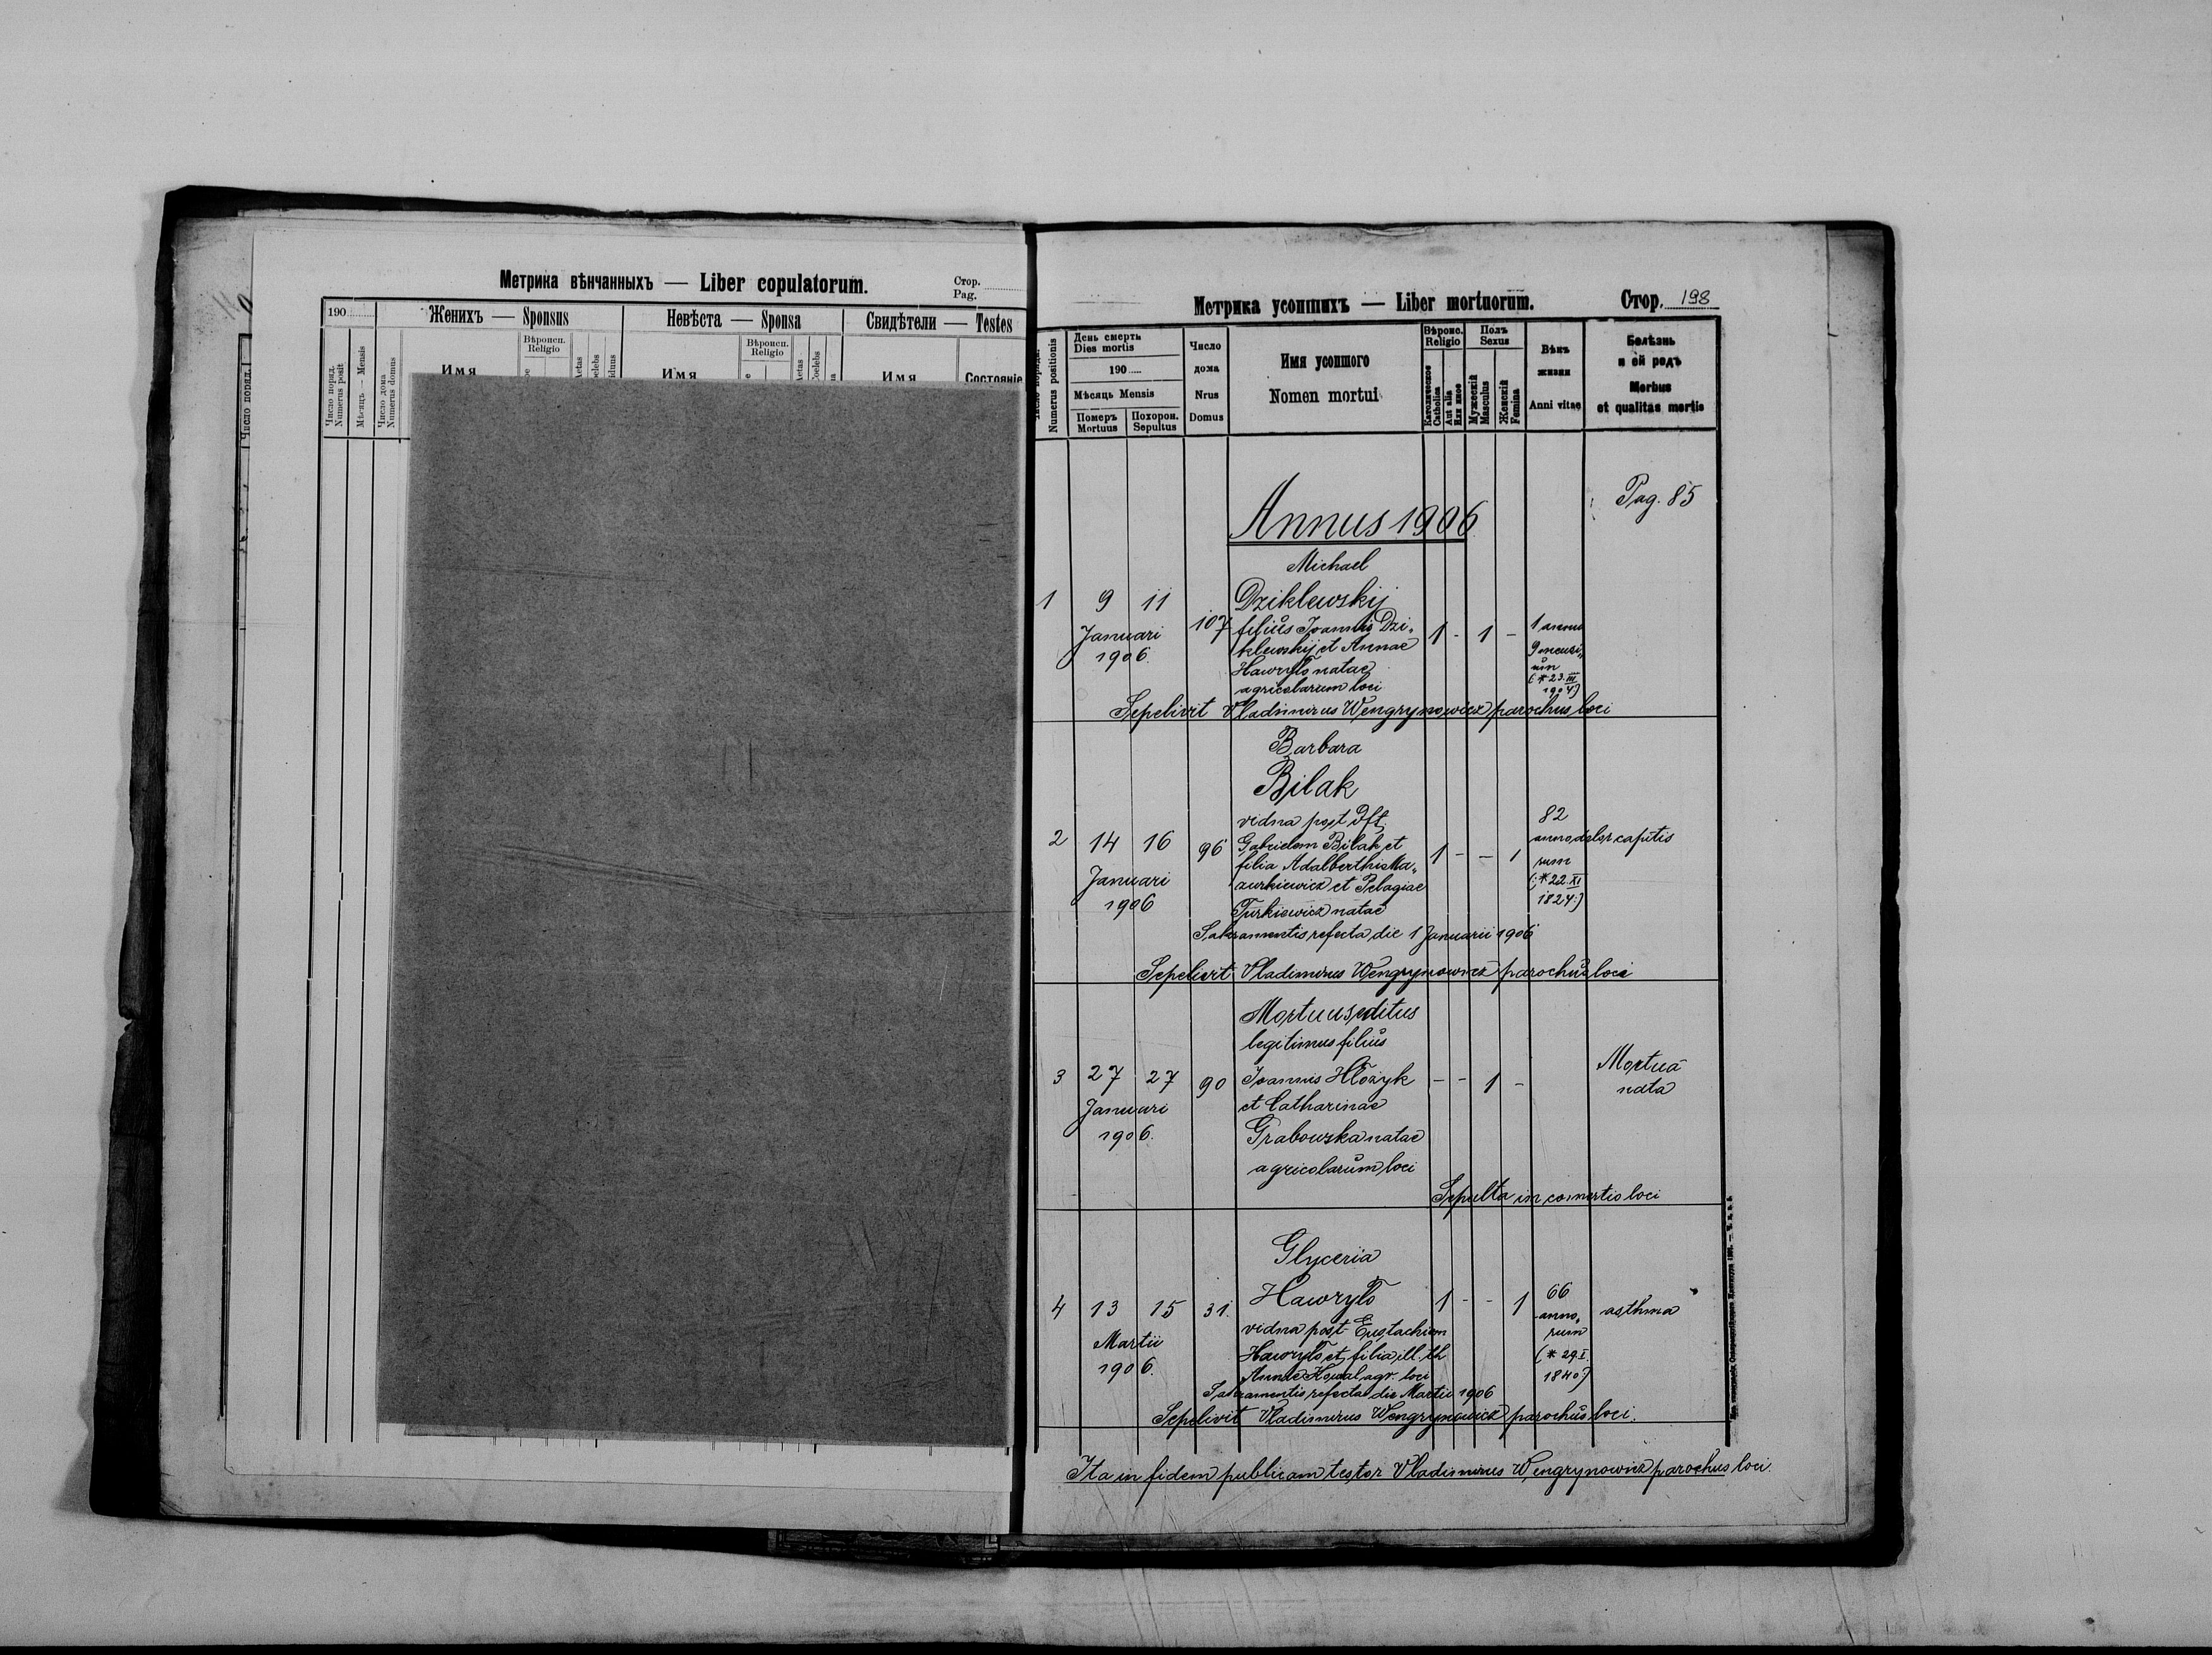 Метрика вѣнчанныхъ — Liber copulatorum.
Стор.
Pag.
190
Женихъ — Sponsus
Невѣста — Sponsa
Свидѣтели — Testes
Число поряд.
Numerus posit
Мѣсяць — Mensis
Число дома
Numerus domus
Имя
Вѣроисп.
Religio
Имя
Вѣроисп.
Religio
Имя
Состояніе
Число поряд.
Метрика усопшихъ — Liber mortuorum.
Стор. 198
Numerus positionis
День смерть
Dies mortis
190
Мѣсяць Mensis
Померъ
Mortuus
Похорон.
Sepultus
Число
дома
Nrus
Domus
Имя усопшого
Nomen mortui
Вѣроис.
Religio
Католическое
Catholica
Aut alia
Или иное
Полъ
Sexus
Мужескій
Masculus
Женскій
Femina
Вѣкъ
жизни
Anni vitae
Болѣзнь
и ей родъ
Morbus
et qualitas mortis
Pag. 85
Annus 1906
Michael
1 9 11 Dziklewskij
Januari 107 filius Joannis Dzi„ 1 - 1 - 1 annus
1906. klewskij et Annae 9 mensi„
Hawryło natae um
agricolarum loci (*23.III 1904)
Sepelivit Vladimirus Wengrynowicz parochus loci
Barbara
Bilak
vidua post Dft
2 14 16 96 Gabrielem Bilak et 1 - - 1 82 annorum dolor capitis
Januari filia Adalberthi Ma„
1906 zurkiewicz et Pelagiae (:*22.XI
Turkiewicz natae 1824:)
Sakramentis refecta die 1 Januarii 1906
Sepelivit Vladimirus Wengrynowicz parochus loci
Mortuus editus
legitimus filius
3 27 27 90 Joannis Hłożyk - - 1 - Mortua
Januari et Catharinae nata
1906. Grabowska natae
agricolarum loci
Sepulta in loci
Glyceria
4 13 15 31. Hawryło 1 - - 1 66 asthma
Martii vidua post Eustachiem anno„
1906. Hawryło et filia ill. th rum
Annae Kowal agr. loci (*29.I. 1840:)
Sakramentis refecta die Martii 1906
Sepelivit Vladimirus Wengrynowicz parochus loci.
Ita in fidem publicam testor Vladimirus Wengrynowicz parochus loci.